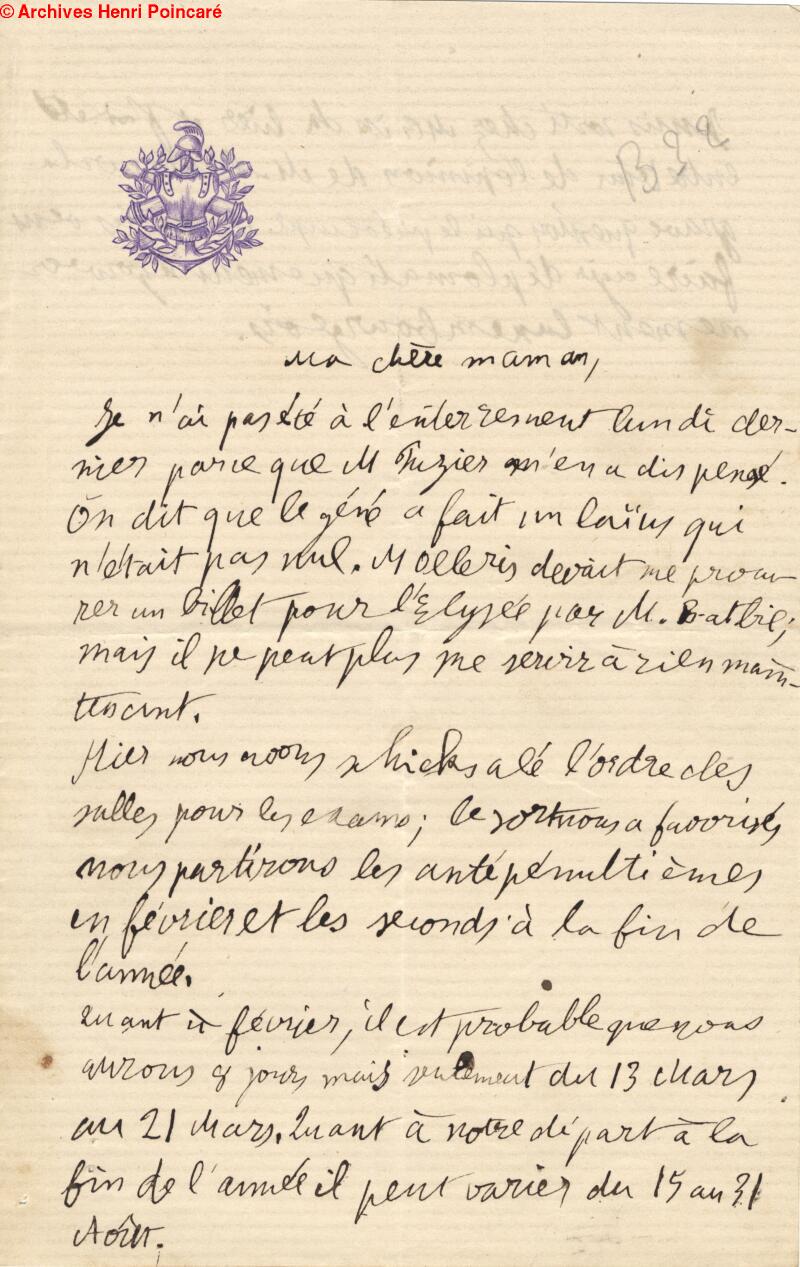 © Archives Henri Poincaré
Ma chère maman,
Je n'ai pas été à l'enterrement lundi der-
nier parce que M Fuzier m'en a dispensé.
On dit que le géné a fait un laïus qui
n'était pas nul. M Olleris devait me procu-
rer un billet pour l'Elysée par M. Batbie;
mais il ne peut plus me servir à rien main-
tenant.
Hier nous avons schicksalé l'ordre des
salles pour les exams; le sort nous a favorisés
nous partirons les antépénultièmes
en février et les seconds à la fin de
l'année.
Quant à février, il est probable que nous
aurons 8 jours mais seulement du 13 Mars
au 21 Mars. Quant à notre départ à la
fin de l'année il peut varier du 15 au 31
Août.